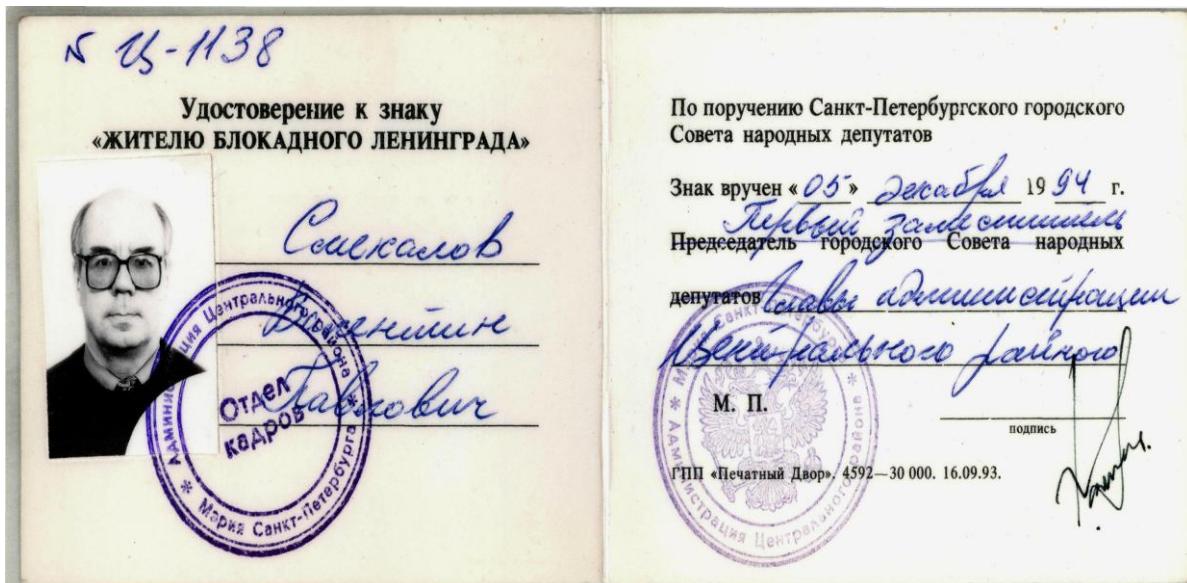 № Ц-1138
Удостоверение к знаку
«ЖИТЕЛЮ БЛОКАДНОГО ЛЕНИНГРАДА»
Смекалов
Валентин
Павлович
Администрация Центрального района
Мэрия Санкт-Петербурга
Отдел
кадров
По поручению Санкт-Петербургского городского
Совета народных депутатов
Знак вручен «05» декабря 1994 г.
Первый заместитель
Председатель городского Совета народных
депутатов главы администрации
Центрального района
М. П.
подпись
ГПП «Печатный Двор». 4592—30 000. 16.09.93.
Мэрия Санкт-Петербурга
Администрация Центрального района